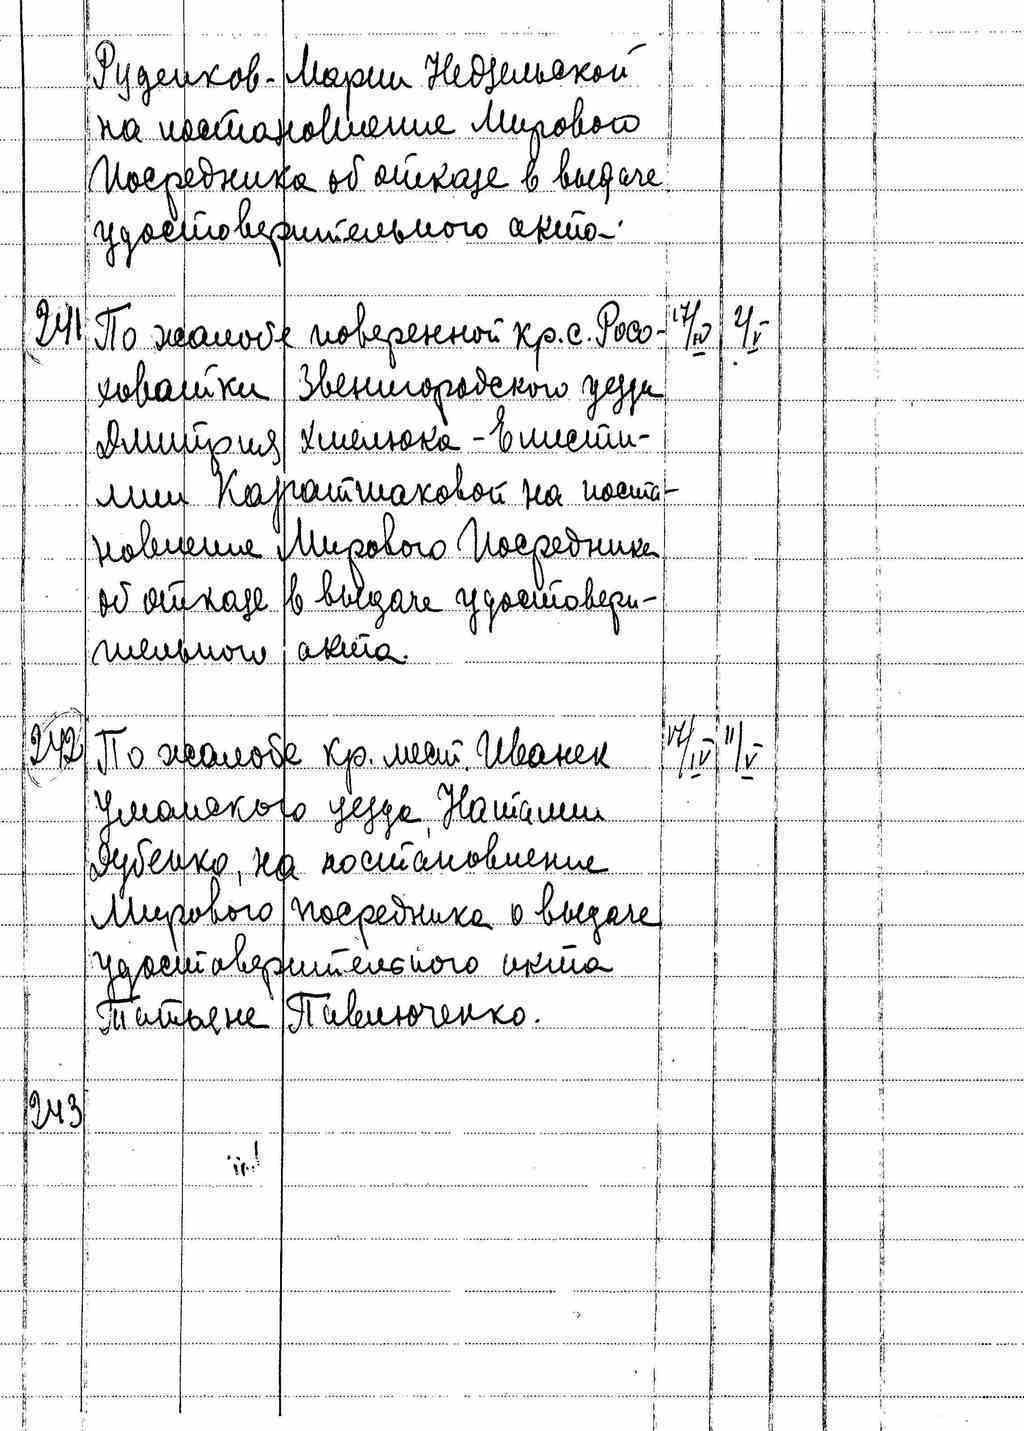 Руденков - Марии Недзельской
на постановление Мирового
Посредника об отказе в выдаче
удостоверительного акта.
241 По жалобе поверенной кр. с. Росо- 17/IV 2/V
ховатки Звенигородского уезда
Дмитрия Хмелюка -
лии на поста-
новление Мирового Посредника
об отказе в выдаче удостовери-
тельного акта.
242 По жалобе кр. мест. Иванек 17/IV 11/V
Уманского уезда, Наталии
Дубенко, на постановление
Мирового посредника о выдаче
удостоверительного акта
Татьяне Павлюченко.
243